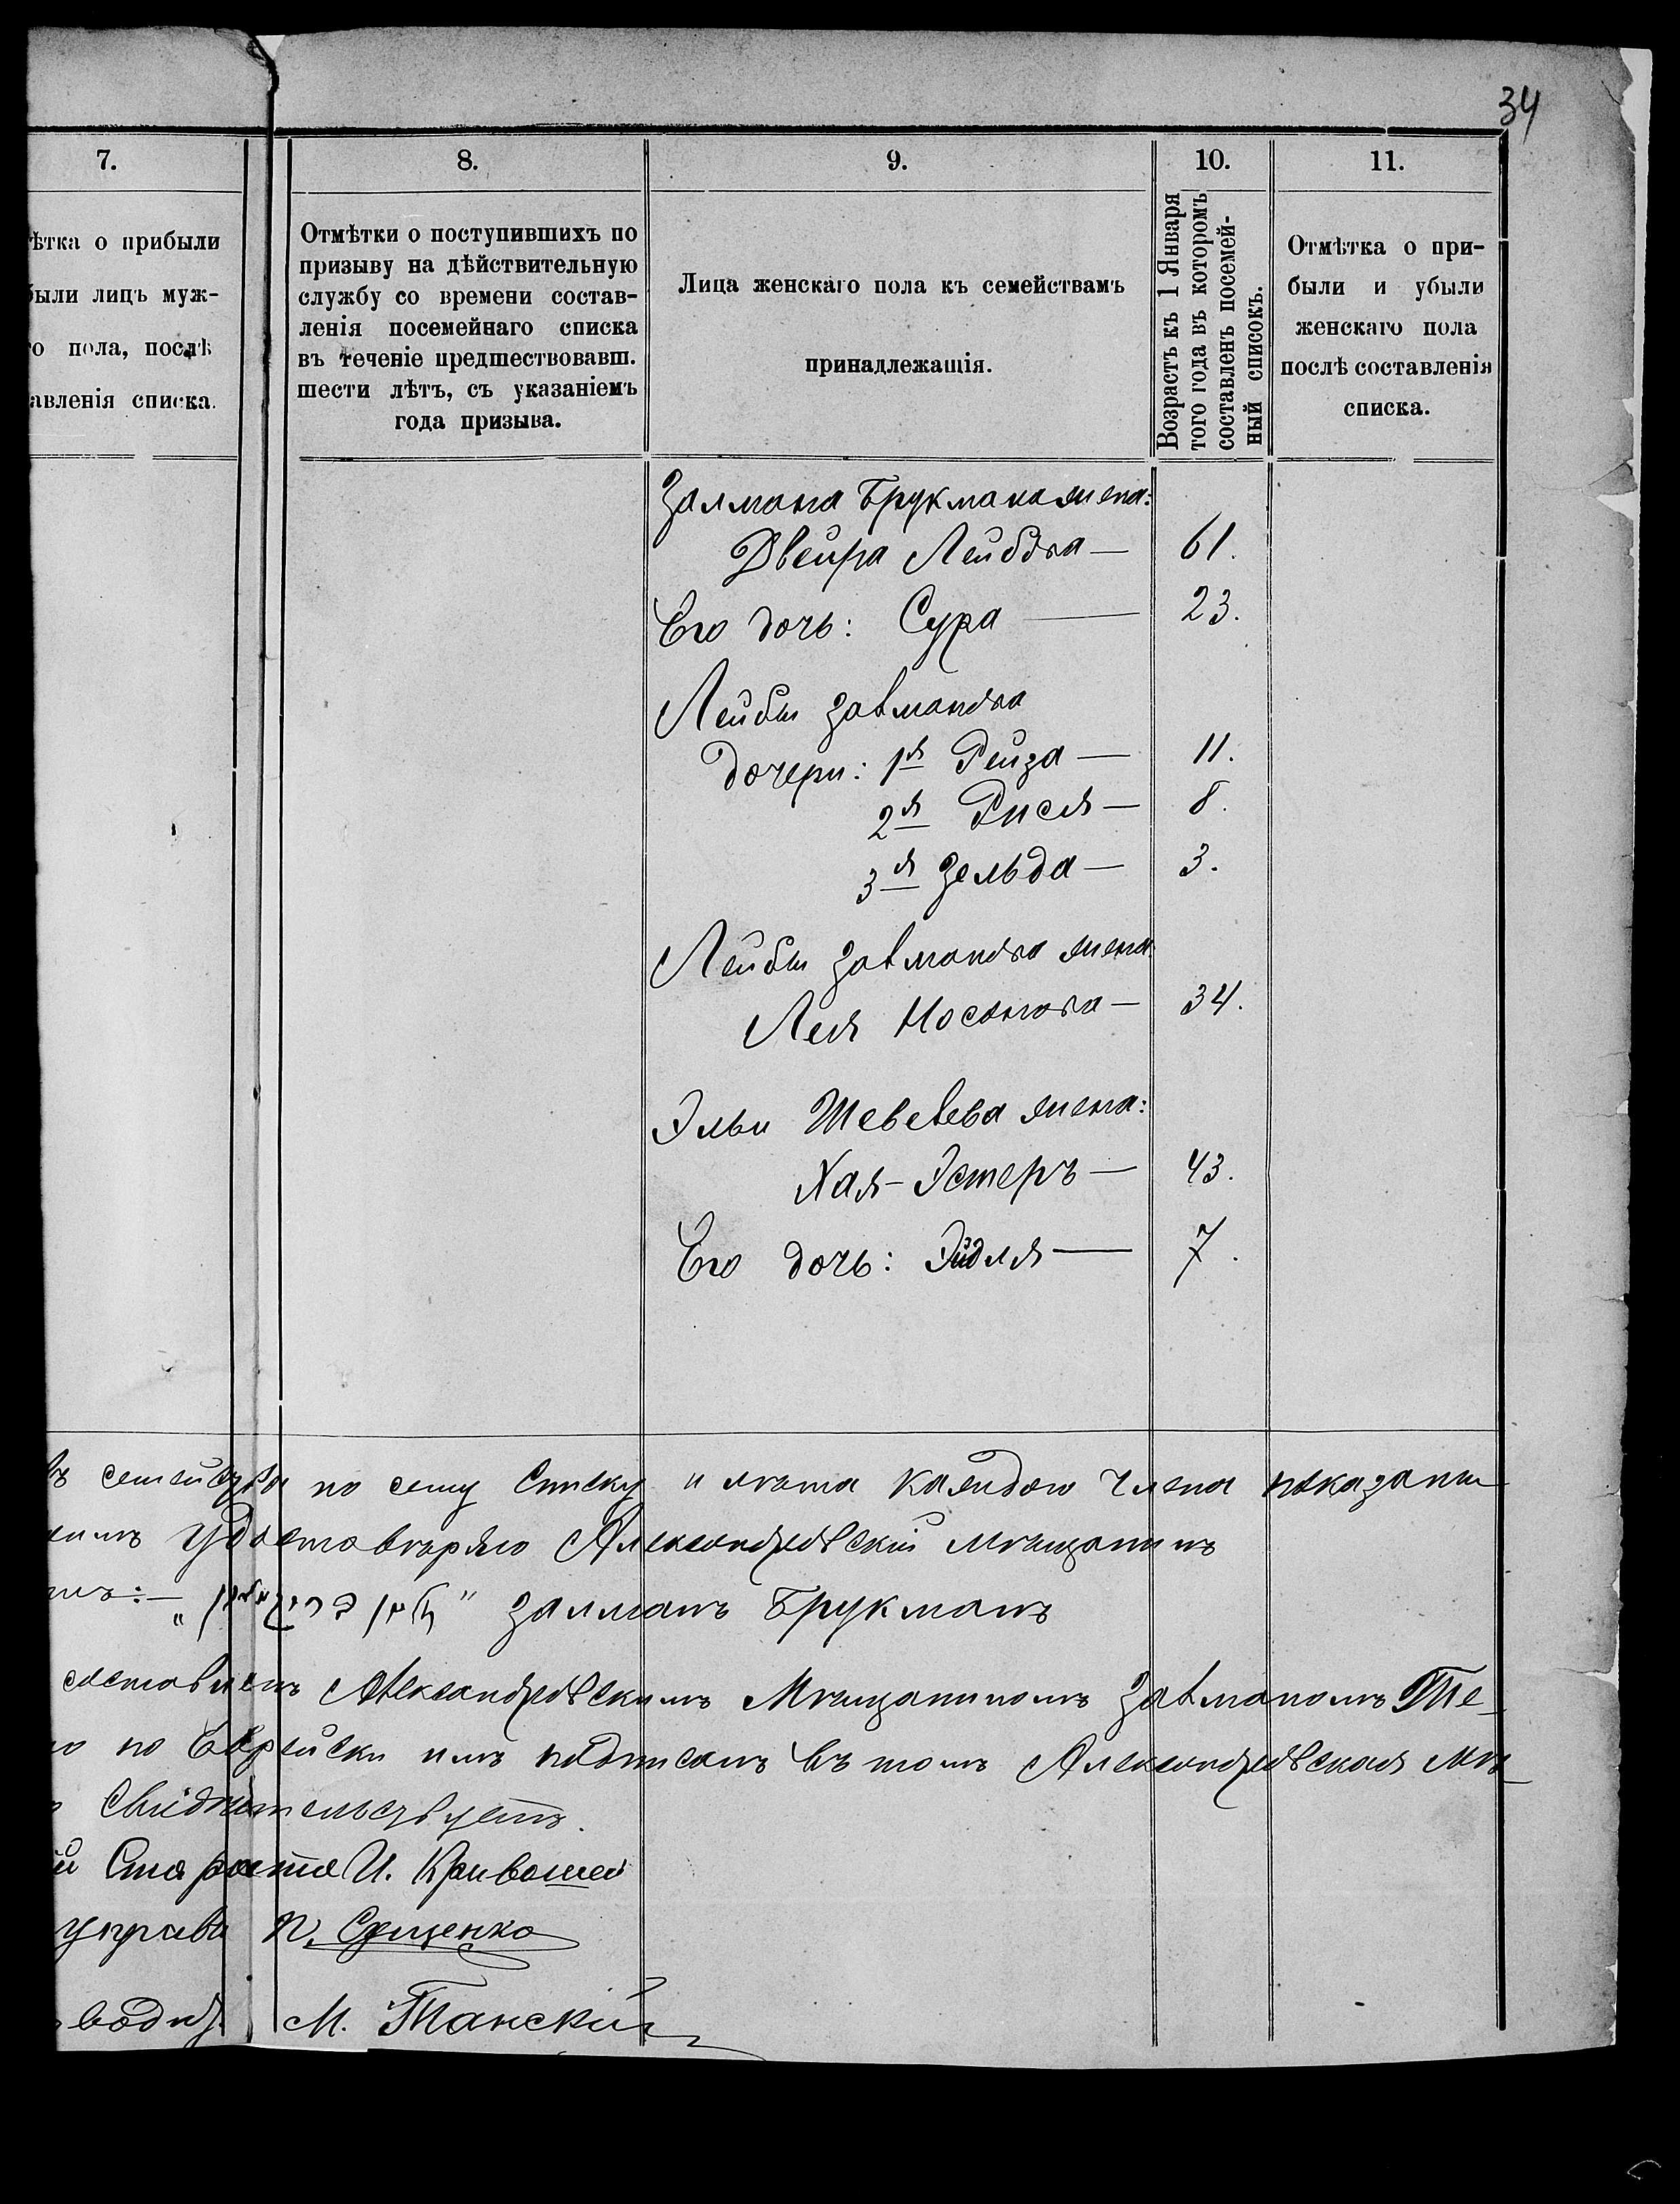 34
7.
8.
9.
10.
11.
ѣтка о прибыли
были лицъ муж-
го пола, послѣ
авленія списка.
Отмѣтки о поступившихъ по
призыву на дѣйствительную
службу со времени состав-
ленія посемейнаго списка
въ теченіе предшествовавш.
шести лѣтъ, съ указаніемъ
года призыва.
Лица женскаго пола къ семействамъ
принадлежащія.
Возрастъ къ 1 Января
того года въ которомъ
составленъ посемей-
ный списокъ.
Отмѣтка о при-
были и убыли
женскаго пола
послѣ составленія
списка.
Залмана Брукмана жена:
Двейра Лейбова — 61.
Его дочь: Сура — 23.
Лейбы Залманова
дочери: 1я Рейза — 11.
2я Рися — 8.
3я Зельда — 3.
Лейбы Залманова жена
Лея Носонова — 34.
Эльи Шевелева жена:
Хая-Эстеръ — 43.
Его дочь: Эйдля — 7.
въ семейства по сему Списку и лѣта каждого члена показаны
симъ удостовѣряю Александровскій мѣщанинъ
"זלמן ברוקמאן" Залманъ Брукманъ
составленъ Александровскимъ Мѣщаниномъ Залманомъ Ше-
но по Еврейски имъ подписанъ въ томъ Александровская Мѣ-
Свидѣтельствуетъ.
й Староста И. Кривошей
управы П. Сущенко
водъ М. Шанскій